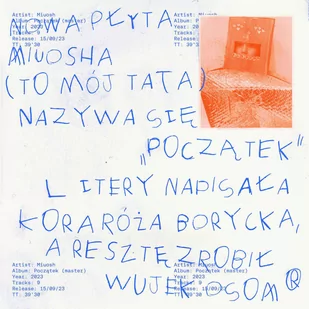 Artist: Miuosh
Album: Początek (master)
Year: 2023
Tracks: 9
Release: 15/09/23
TT: 39'38
Artist: Miuosh
Album: Początek (master)
Year: 2023
Tracks: 9
Release: 15/09/23
TT: 39'38
NOWA PŁYTA
MIUOSHA
(TO MÓJ TATA)
NAZYWA SIĘ
„POCZĄTEK”
LITERY NAPISAŁA
KORA RÓŻA BORYCKA,
A RESZTĘ ZROBIŁ
WUJEK SOM®
Artist: Miuosh
Album: Początek (master)
Year: 2023
Tracks: 9
Release: 15/09/23
TT: 39'38
Artist: Miuosh
Album: Początek (master)
Year: 2023
Tracks: 9
Release: 15/09/23
TT: 39'38